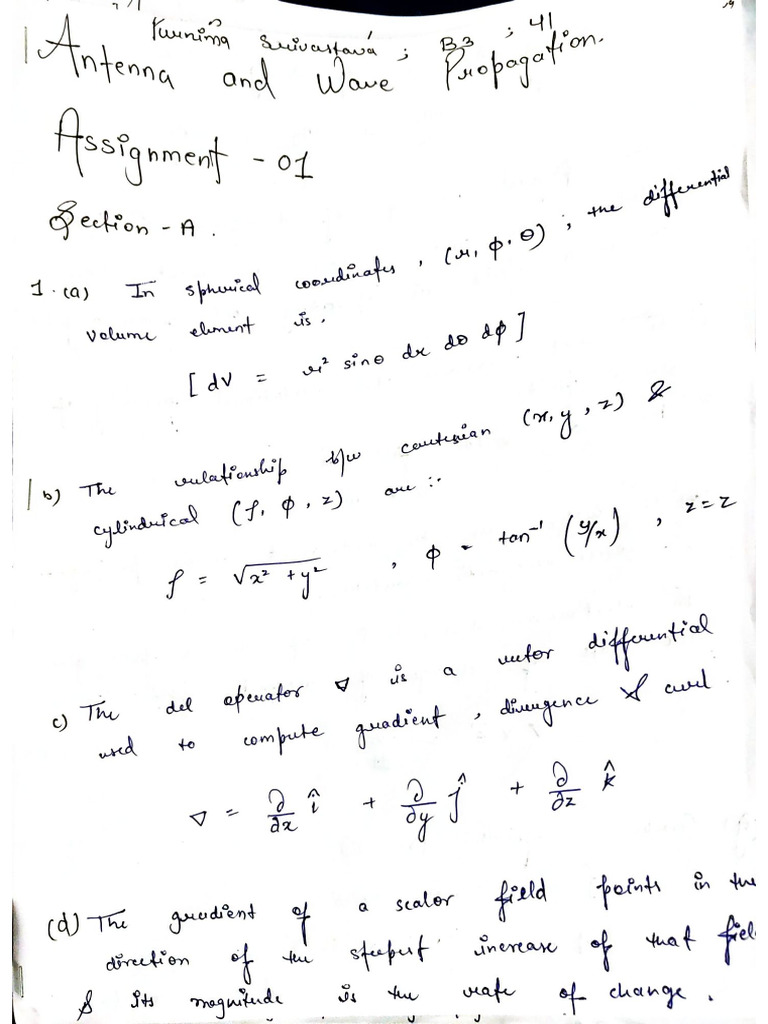 Purnima Srivastava ; B3 ; 41
Antenna and Wave Propagation.
Assignment - 01
Section - A.
1. (a) In spherical coordinates, (r, φ, θ) ; the differential
volume element is.
[ dV = r² sinθ dr dθ dφ ]
b) The relationship b/w cartesian (x, y, z) &
cylindrical (ρ, φ, z) are :-
ρ = √x² + y² , φ = tan⁻¹ (y/x) , z = z
c) The del operator ∇ is a vector differential
used to compute gradient, divergence & curl
∇ = ∂/∂x î + ∂/∂y ĵ + ∂/∂z k̂
(d) The gradient of a scalar field points in the
direction of the steepest increase of that field
& its magnitude is the rate of change.